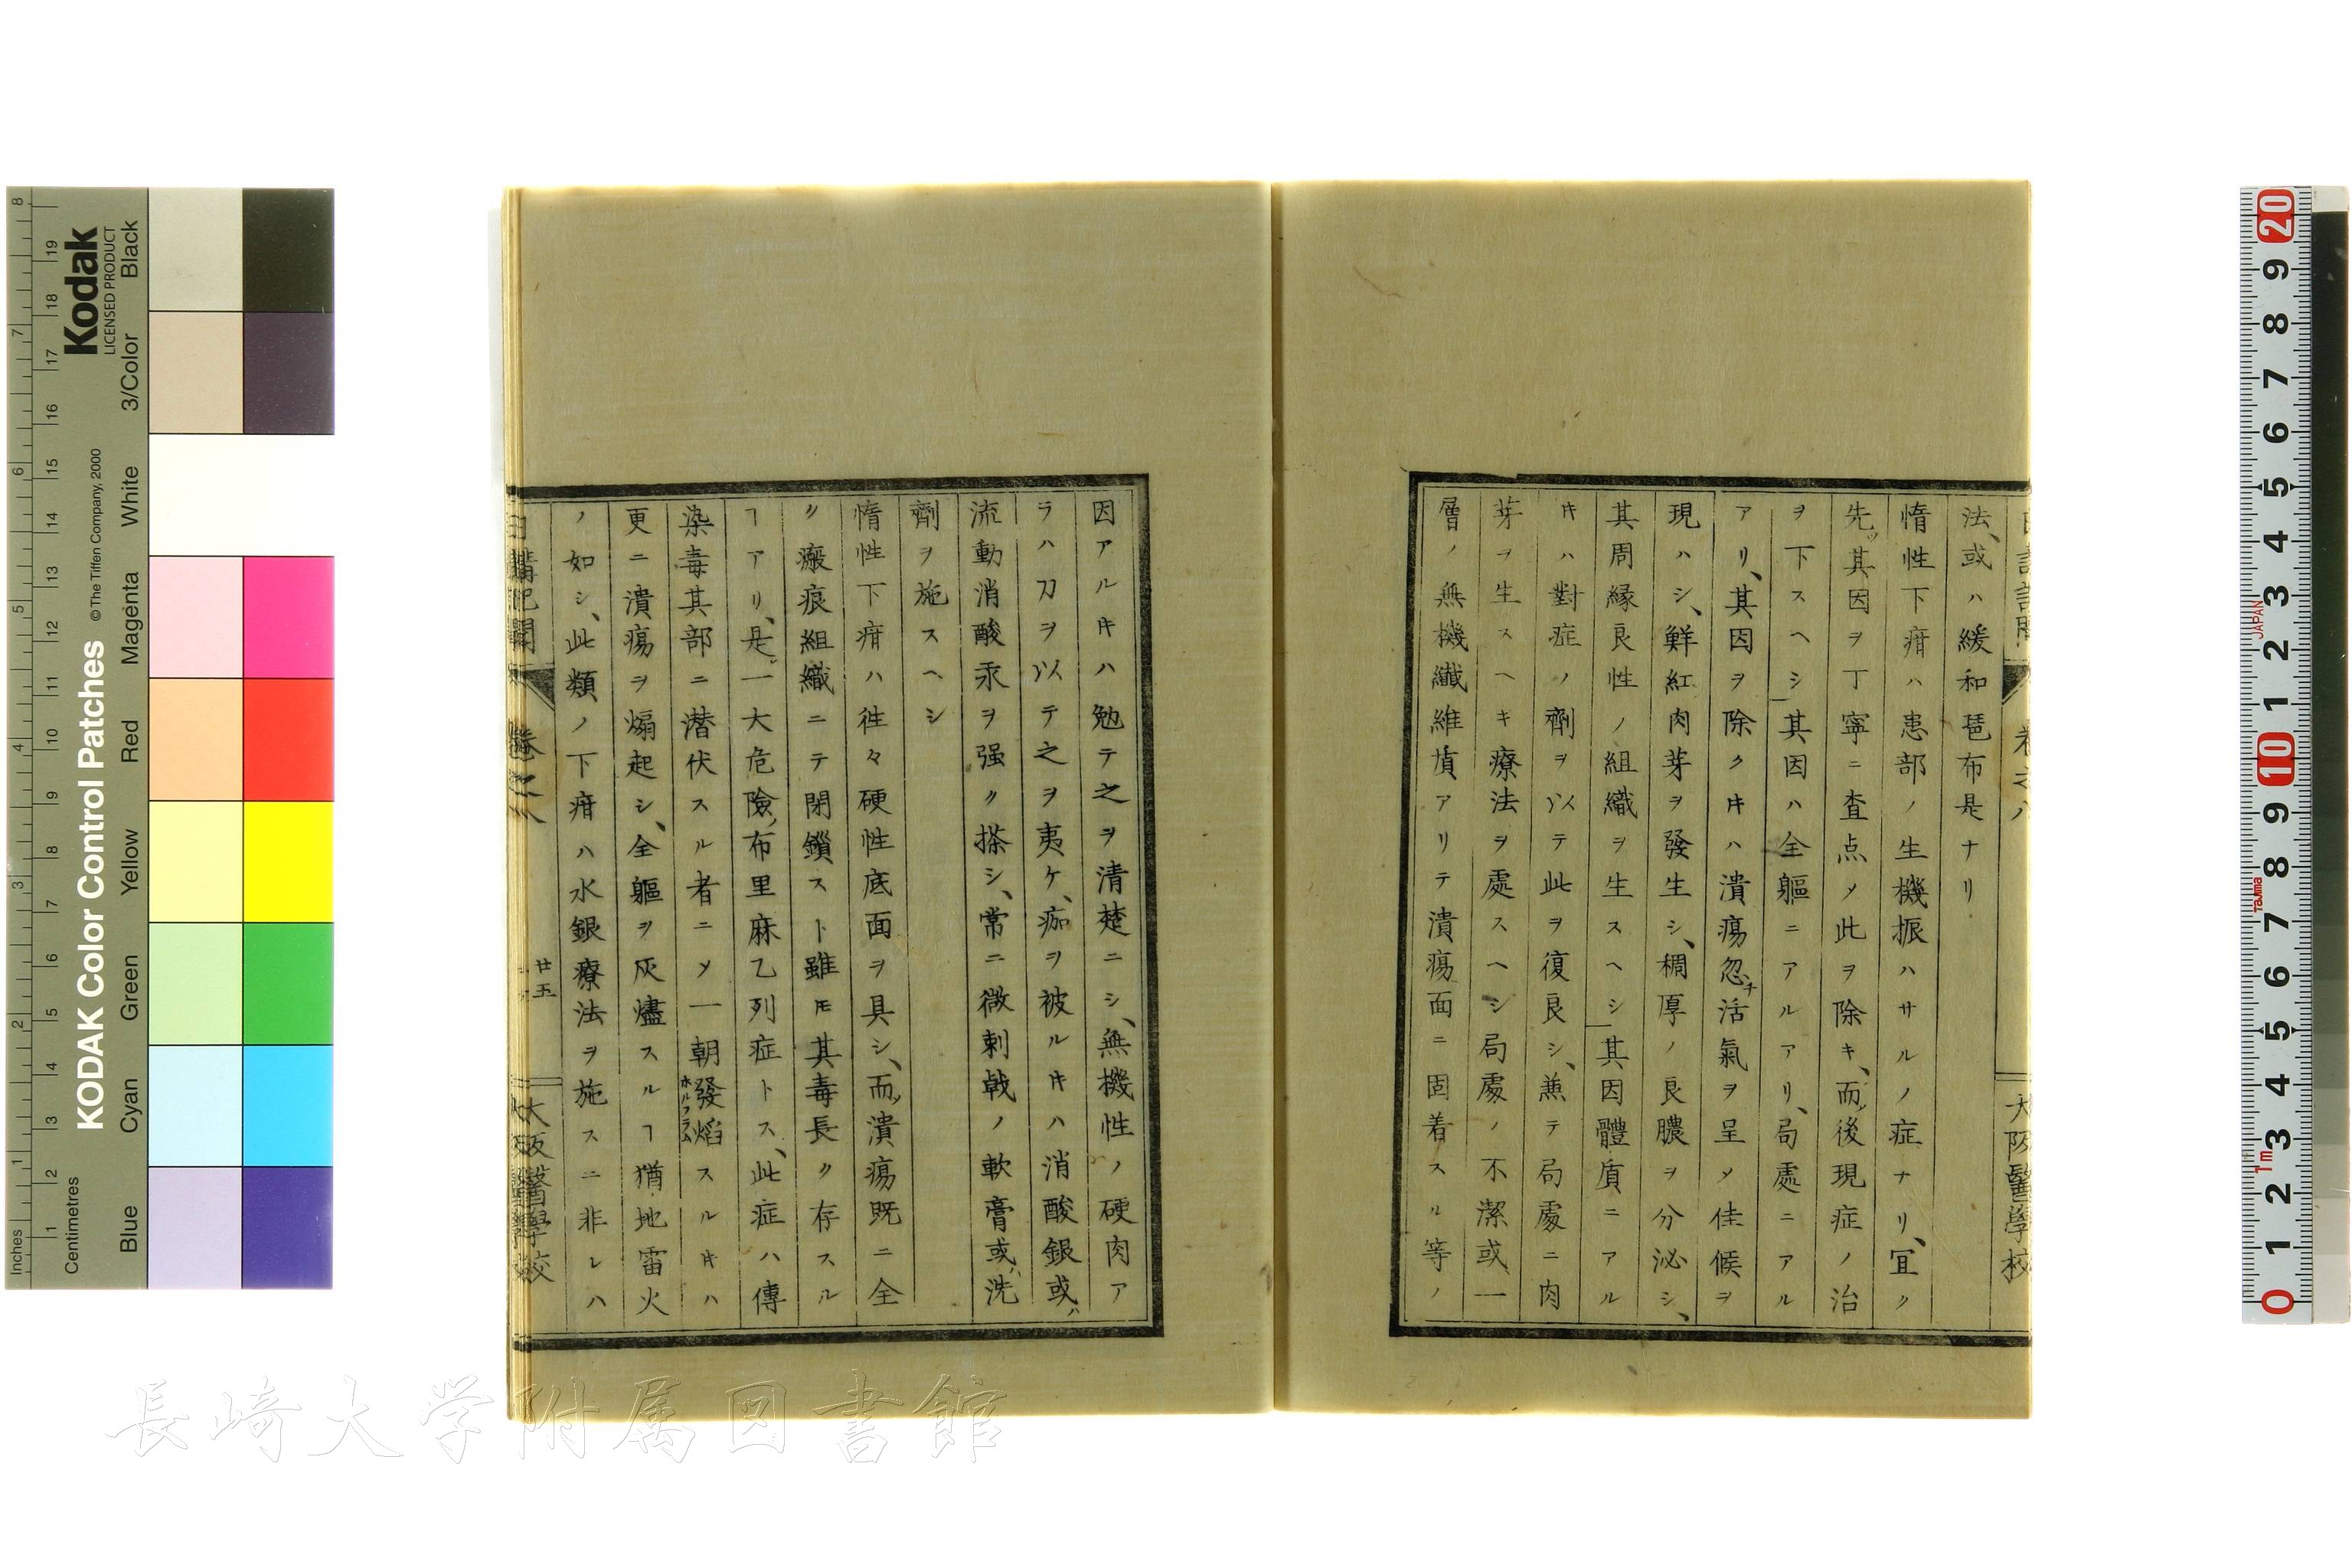 法、或ハ緩和琶布是ナリ
惰性下疳ハ患部ノ生機振ハサルノ症ナリ、冝ク
先ツ其因ヲ丁寧ニ査点メ此ヲ除キ、而後現症ノ治
ヲ下スヘシ其因ハ全軀ニアルアリ、局處ニアル
アリ、其因ヲ除クキハ潰瘍忽チ活氣ヲ呈メ佳候ヲ
現ハシ、鮮紅肉芽ヲ發生シ、稠厚ノ良膿ヲ分泌シ、
其周縁良性ノ組織ヲ生スヘシ其因體質ニアル
キハ對症ノ劑ヲ以テ此ヲ復良シ、兼テ局處ニ肉
芽ヲ生スヘキ療法ヲ處スヘシ局處ノ不潔或一
層ノ無機纎維塡アリテ潰瘍面ニ固着スル等ノ
大阪醫學校
因アルキハ勉テ之ヲ清楚ニシ、無機性ノ硬肉ア
ラハ刀ヲ以テ之ヲ夷ケ、痂ヲ被ルキハ消酸銀或ハ
流動消酸汞ヲ强ク搽シ、常ニ微刺戟ノ軟膏或ハ洗
劑ヲ施スヘシ
惰性下疳ハ徃々硬性底面ヲ具シ、而ノ潰瘍既ニ全
ク瘢痕組織ニテ閉鎖スト雖モ其毒長ク存スル
ヿアリ、是レ一大危險ノ布里麻乙列症トス、此症ハ傳
染毒其部ニ潜伏スル者ニメ一朝發焰スルキハ
ホルラム
更ニ潰瘍ヲ煽起シ、全軀ヲ灰燼スルヿ猶地雷火
ノ如シ、此類ノ下疳ハ水銀療法ヲ施スニ非レハ
卷之八
廿五
大阪醫學校
長崎大学附属図書館
KODAK Color Control Patches
© The Tiffen Company, 2000
Kodak
LICENSED PRODUCT
Inches
Centimetres
Blue
Cyan
Green
Yellow
Red
Magenta
White
3/Color
Black
JAPAN
Tajima
1m